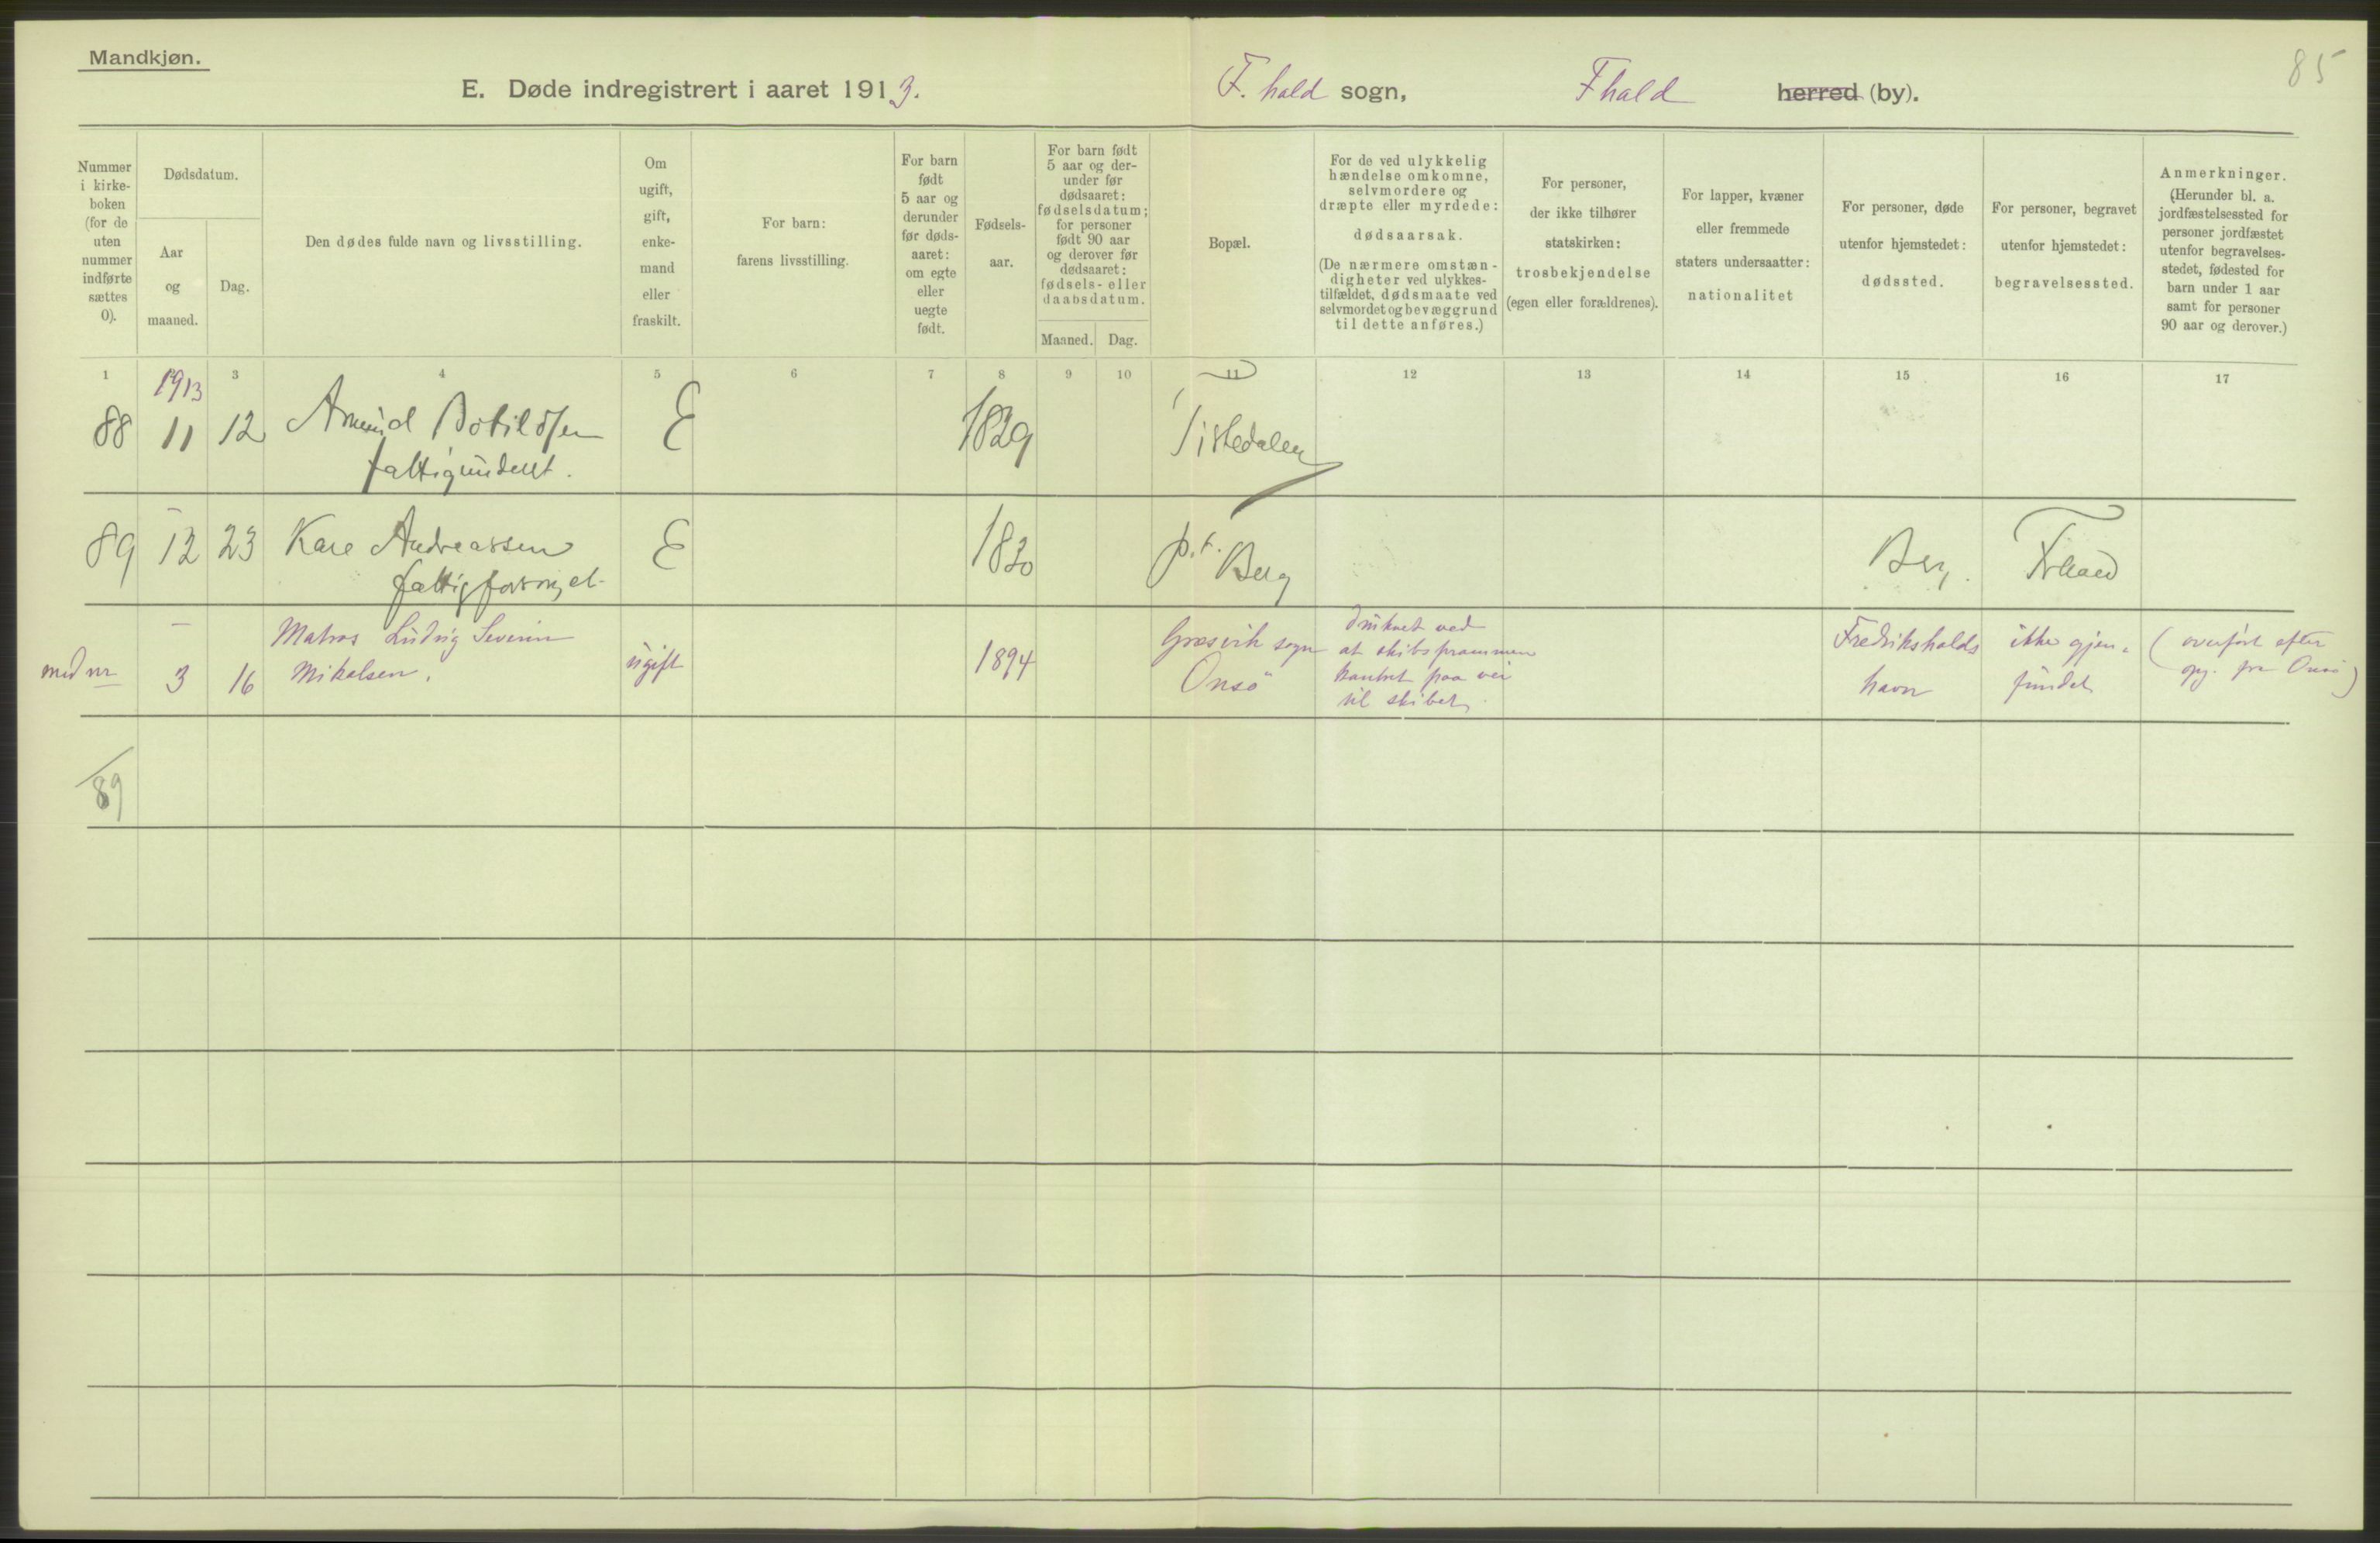 Mandkjøn.
85
E. Døde indregistrert i aaret 1913. F. hald sogn, Fhald herred (by).
Nummer i kirke-boken (for de uten nummer indførte sættes 0).
Dødsdatum.
Aar og maaned.
Dag.
Den dødes fulde navn og livsstilling.
Om ugift, gift, enke-mand eller fraskilt.
For barn: farens livsstilling.
For barn født 5 aar og derunder før døds-aaret: om egte eller uegte født.
Fødsels-aar.
For barn født 5 aar og der-under før dødsaaret: fødselsdatum; for personer født 90 aar og derover før dødsaaret: fødsels- eller daabsdatum.
Maaned. Dag.
Bopæl.
For de ved ulykkelig hændelse omkomne, selvmordere og dræpte eller myrdede: dødsaarsak.
(De nærmere omstæn-digheter ved ulykkes-tilfældet, dødsmaate ved selvmordet og bevæggrund til dette anføres.)
For personer, der ikke tilhører statskirken: trosbekjendelse (egen eller forældrenes).
For lapper, kvæner eller fremmede staters undersaatter: nationalitet
For personer, døde utenfor hjemstedet: dødssted.
For personer, begravet utenfor hjemstedet: begravelsessted.
Anmerkninger.
(Herunder bl. a. jordfæstelsessted for personer jordfæstet utenfor begravelses-stedet, fødested for barn under 1 aar samt for personer 90 aar og derover.)
1 3 4 5 6 7 8 9 10 11 12 13 14 15 16 17
1913
88 11 12 Amund E 1829 Tistedalen
fattigunderst.
89 12 23 Kare Andreassen E 1830 p.t. Berg Berg. Frhald
–
Matros Ludvig Severin
Mikalsen.
3 16 ugift 1894
Græsvik sogn
Onsö
druknet ved
at skibsprammen
kantret paa vei
til skibet.
Fredrikshalds
havn
ikke gjen-
fundet
(overført efter
opg. fra Onsö)
89